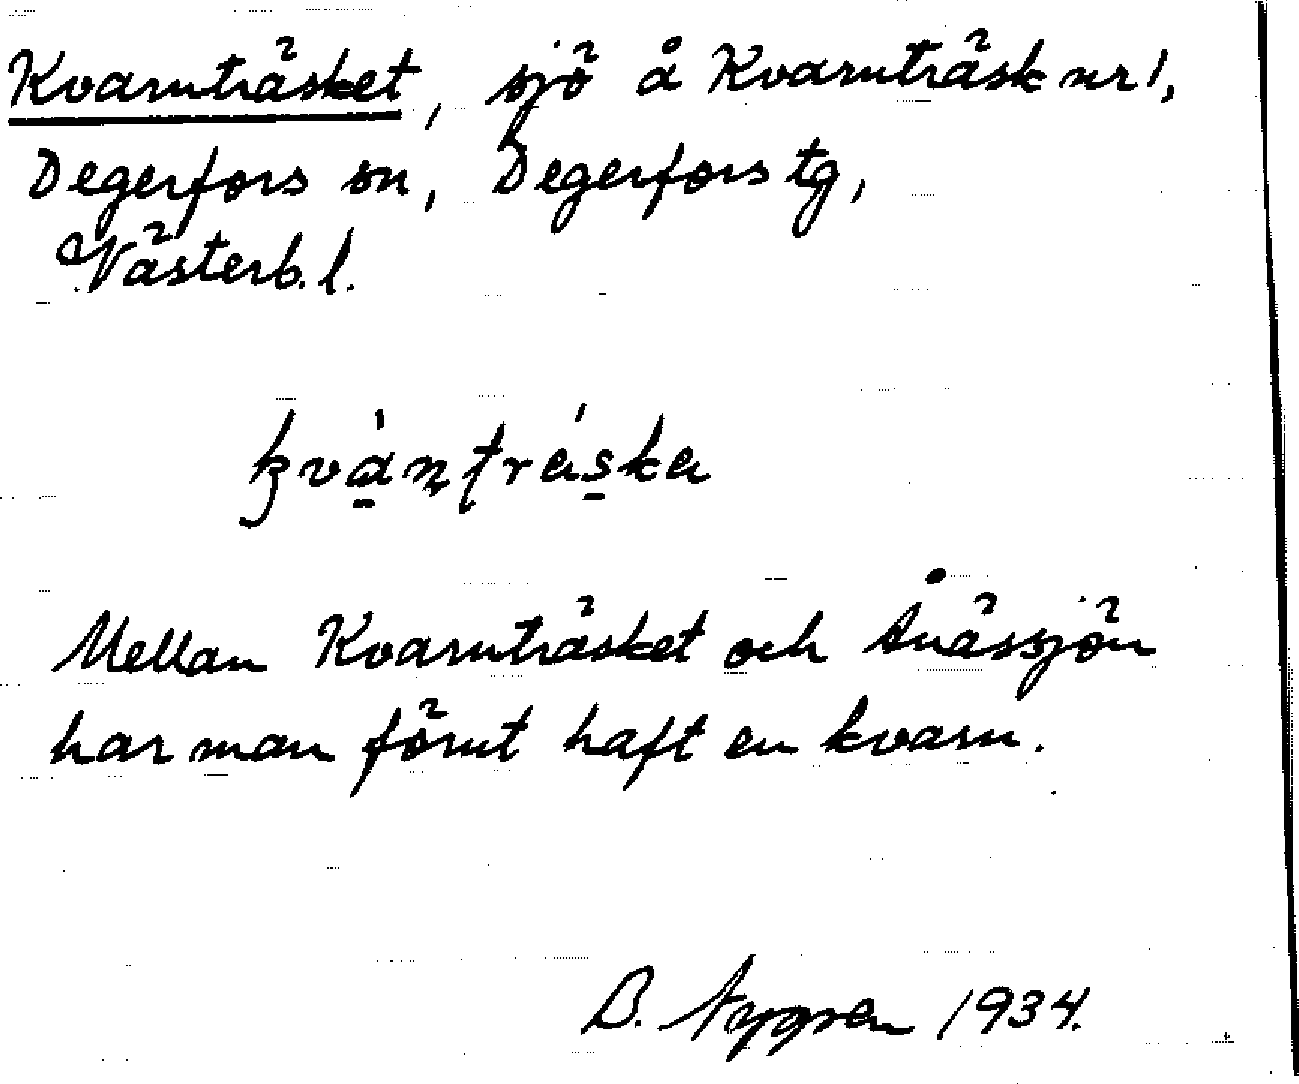 Kvarnträsket, sjö å Kvarnträsk nr 1,
Degerfors sn, Degerfors tg,
Västerb. l.
Mellan Kvarnträsket och Ånässjön
har man förut haft en kvarn.
B. Nygren 1934.